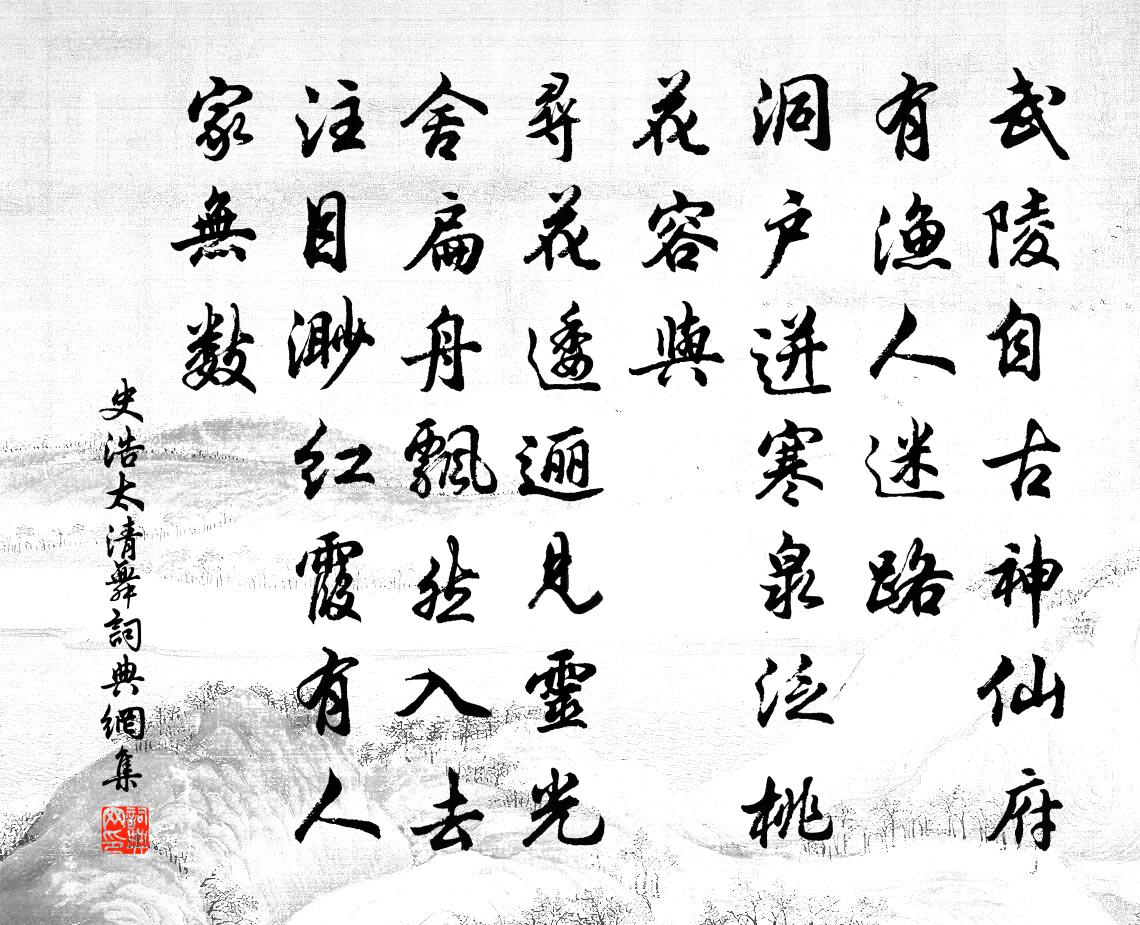 武陵自古神仙府
有漁人迷路
洞戶迸寒泉泛桃
花容與
尋花迤邐見靈光
舍扁舟飄然入去
注目渺紅霞有人
家無數
史浩太清舞詞典網集
詞典網集